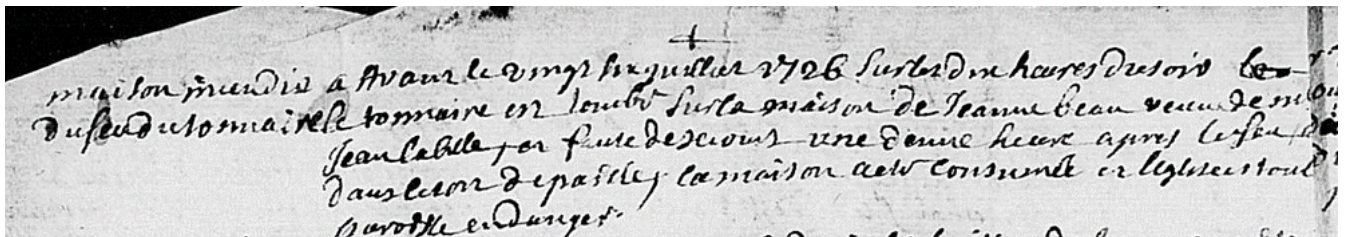 maison incendié a Avaux le vingt six juillet 1726 sur les dix heures du soir le
du feu du tonnaire le tonnaire est tombé sur la maison de Jeanne beau veuve de
Jean labille, et faute de secours une demie heure apres le feu
dans le toit de paille, la maison a eté consumée et l'eglise et tout
paroisse en danger.